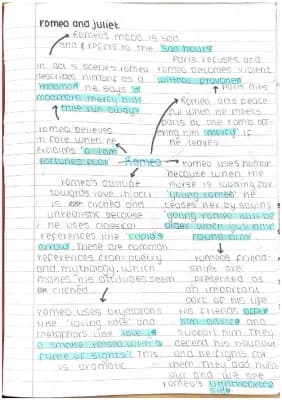 romeo and juliet
Romeo's mood is sad
and refers to the "sad hours"
Paris refuses and
in act 5 scene 3 romeo
romeo becomes violent
describes himself as a
without provoken
madman he says "a
→ Paris dies
madmans mercy bid
thee run away"
Romeo was peace-
ful when he meets
paris at the tomb off
ing him mercy if
he leaves
romeo believes
in fate when he
explains "o I am
fortunes fool"
Romeo
romeo uses humor
because when the
nurse is looking for
"young romeo" he
teases her by saying
"young romeo will be
older when you have
found him"
romeo's attitude
towards love in act
1 is cliched and
unrealistic because
he uses classical
references like "cupid's
arrow". These are common
references from poetry
and mythology, which
makes his attitudes seem
cliched
romeo's friend-
ships are
presented as
an important
part of his life
romeo uses oxymorons
like "loving hate" and
metaphors like "love is
a smoke raised with a
fume of sighs". This
is dramatic
his friends offer
him advice and
support him. They
defend his honour
and he fights for
them. They add humour
and we see
romeo's lighthearted
side